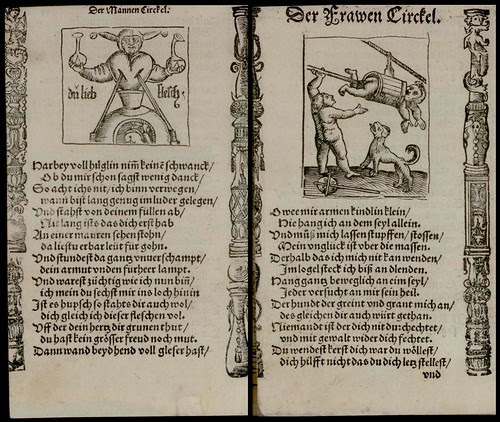 Der Mannen Circkel.
du lieb flesch
Harbey voll hüglin nim̃ keinē schwanck/
Ob du mir schon sagst wenig danck/
So acht ichs nit/ ich binn verwegen/
wann bist lang genug im luder gelegen/
Und stahst von deinem füllen ab/
Nit lang ist das dich erst hab
An einer mauren sehen stohn/
da liestu erbar leüt für gohn.
Und stundest da gantz unuerschampt/
dein armut vnden fürher lampt.
Und warest züchtig wie ich nun bin/
ich mein du sechst mir ins loch hinin
Ist es hupsch so stahts dir auch wol/
dich gleich ich dieser fleschen vol.
Uff der dein hertz dir grunen thut/
du hast kein grösser freud noch mut.
Dann wand beydhend voll gleser hast/
Der Frawen Circkel.
O wee mir armen kindlin klein/
Hie hang ich an dem seyl allein.
Und můß mich lassen stupffen/ stossen/
Mein unglück ist vber die massen.
Derhalb das ich mich nit kan wenden/
Im logel steck ich biß an dlenden.
Hang gantz beweglich an eim seyl/
Jeder versucht an mir sein heil.
Der hundt der greint und grant mich an/
des gleichen dir auch würt gethan.
Niemandt ist der dich nit durchechtet/
und mit gewalt wider dich fechtet.
Du wendest kerst dich war du wöllest/
dich hilfft nicht das du dich letz stellest/
und